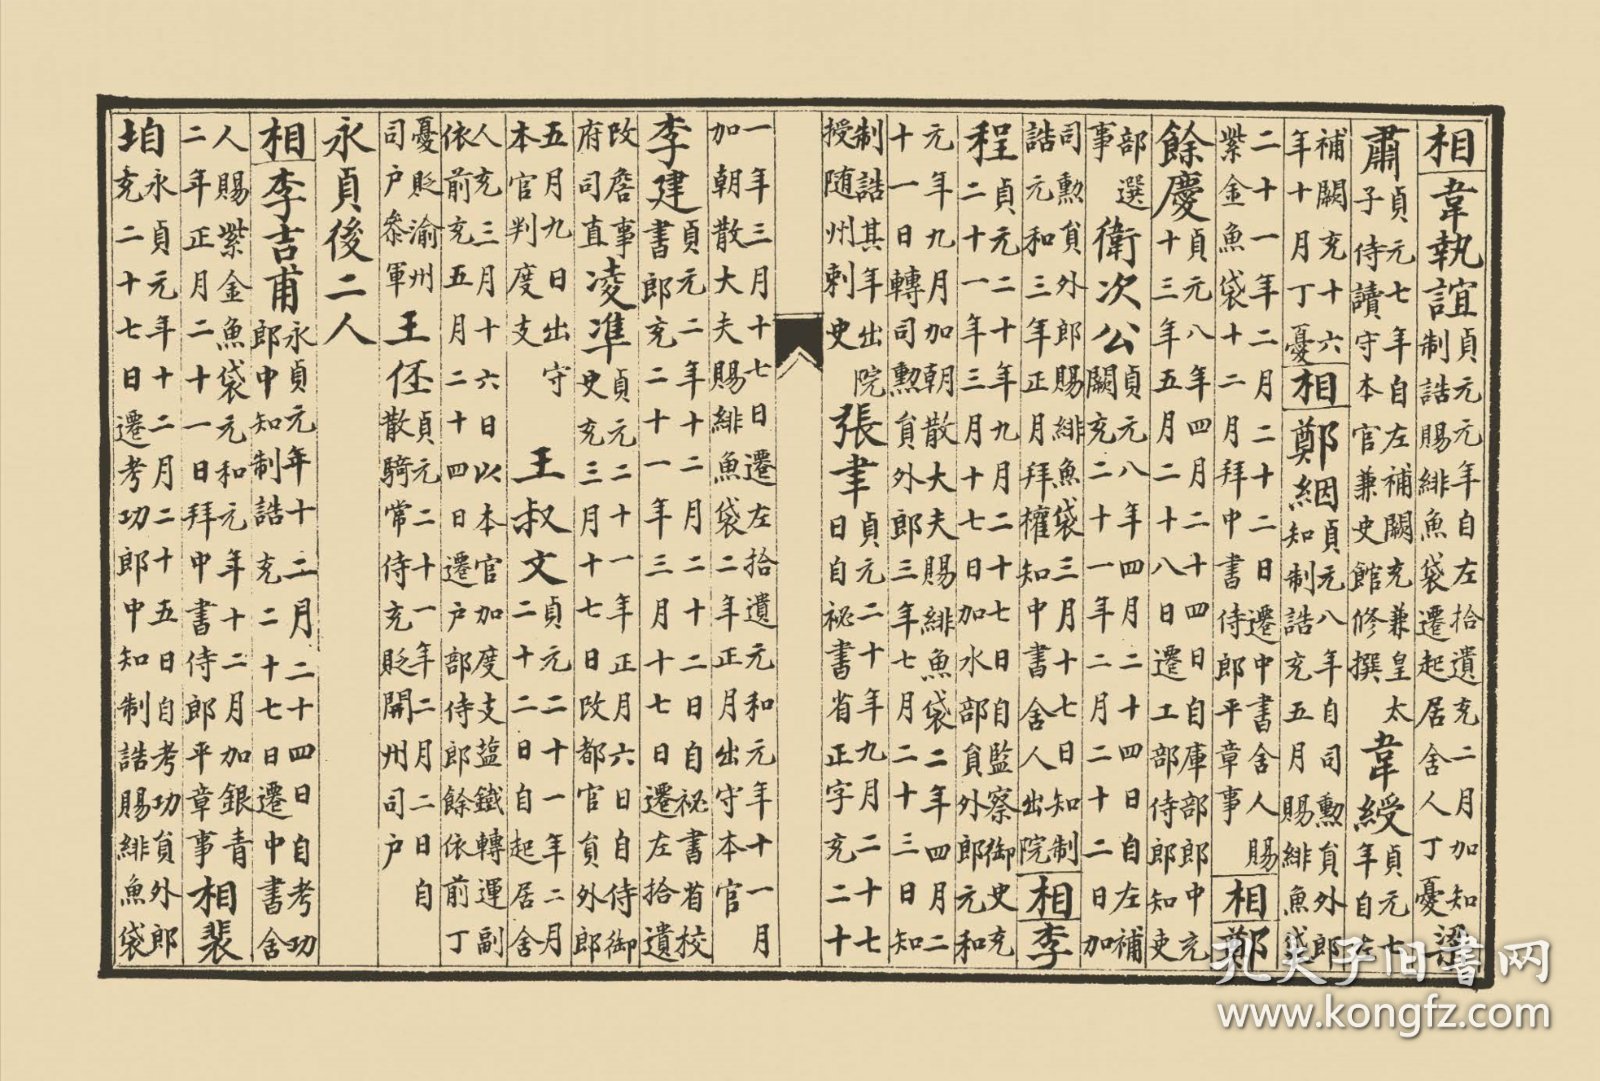 相韋執誼貞元元年自左拾遺充二月加知制誥賜緋魚袋遷起居舍人丁憂梁
肅貞元七年自左補闕充兼皇太子侍讀守本官兼史館修撰韋綬貞元七年自左
補闕充十六年十月丁憂相鄭絪貞元八年自司勳員外郎知制誥充五月賜緋魚袋
二十一年二月二十二日遷中書舍人賜紫金魚袋十二月拜中書侍郎平章事相鄭
餘慶貞元八年四月二十四日自庫部郎中充十三年五月二十八日遷工部侍郎知吏
部選事衛次公貞元八年四月二十四日自左補闕充二十一年二月二十二日加
司勳員外郎賜緋魚袋三月十七日知制誥元和三年正月拜權知中書舍人出院相李
程貞元二十年九月二十七日自監察御史充二十一年三月十七日加水部員外郎元和
元年九月加朝散大夫賜緋魚袋二年四月二十一日轉司勳員外郎三年七月二十三日知
制誥其年出院授随州刺史張聿貞元二十年九月二十七日自祕書省正字充二十
一年三月十七日遷左拾遺元和元年十一月加朝散大夫賜緋魚袋二年正月出守本官
李建貞元二年十二月二十二日自祕書省校書郎充二十一年三月十七日遷左拾遺
改詹事府司直凌凖貞元二十一年正月六日自侍御史充三月十七日改都官員外郎
五月九日出守本官判度支王叔文貞元二十一年二月二十二日自起居舍
人充三月十六日以本官加度支鹽鐵轉運副依前充五月二十四日遷户部侍郎餘依前丁
憂貶渝州司户叅軍王伾貞元二十一年二月二日自散騎常侍充貶開州司户
永貞後二人
相李吉甫永貞元年十二月二十四日自考功郎中知制誥充二十七日遷中書舍
人賜紫金魚袋元和元年十二月加銀青二年正月二十一日拜中書侍郎平章事相裴
垍永貞元年十二月二十五日自考功員外郎充二十七日遷考功郎中知制誥賜緋魚袋
孔夫子旧书网
www.kongfz.com